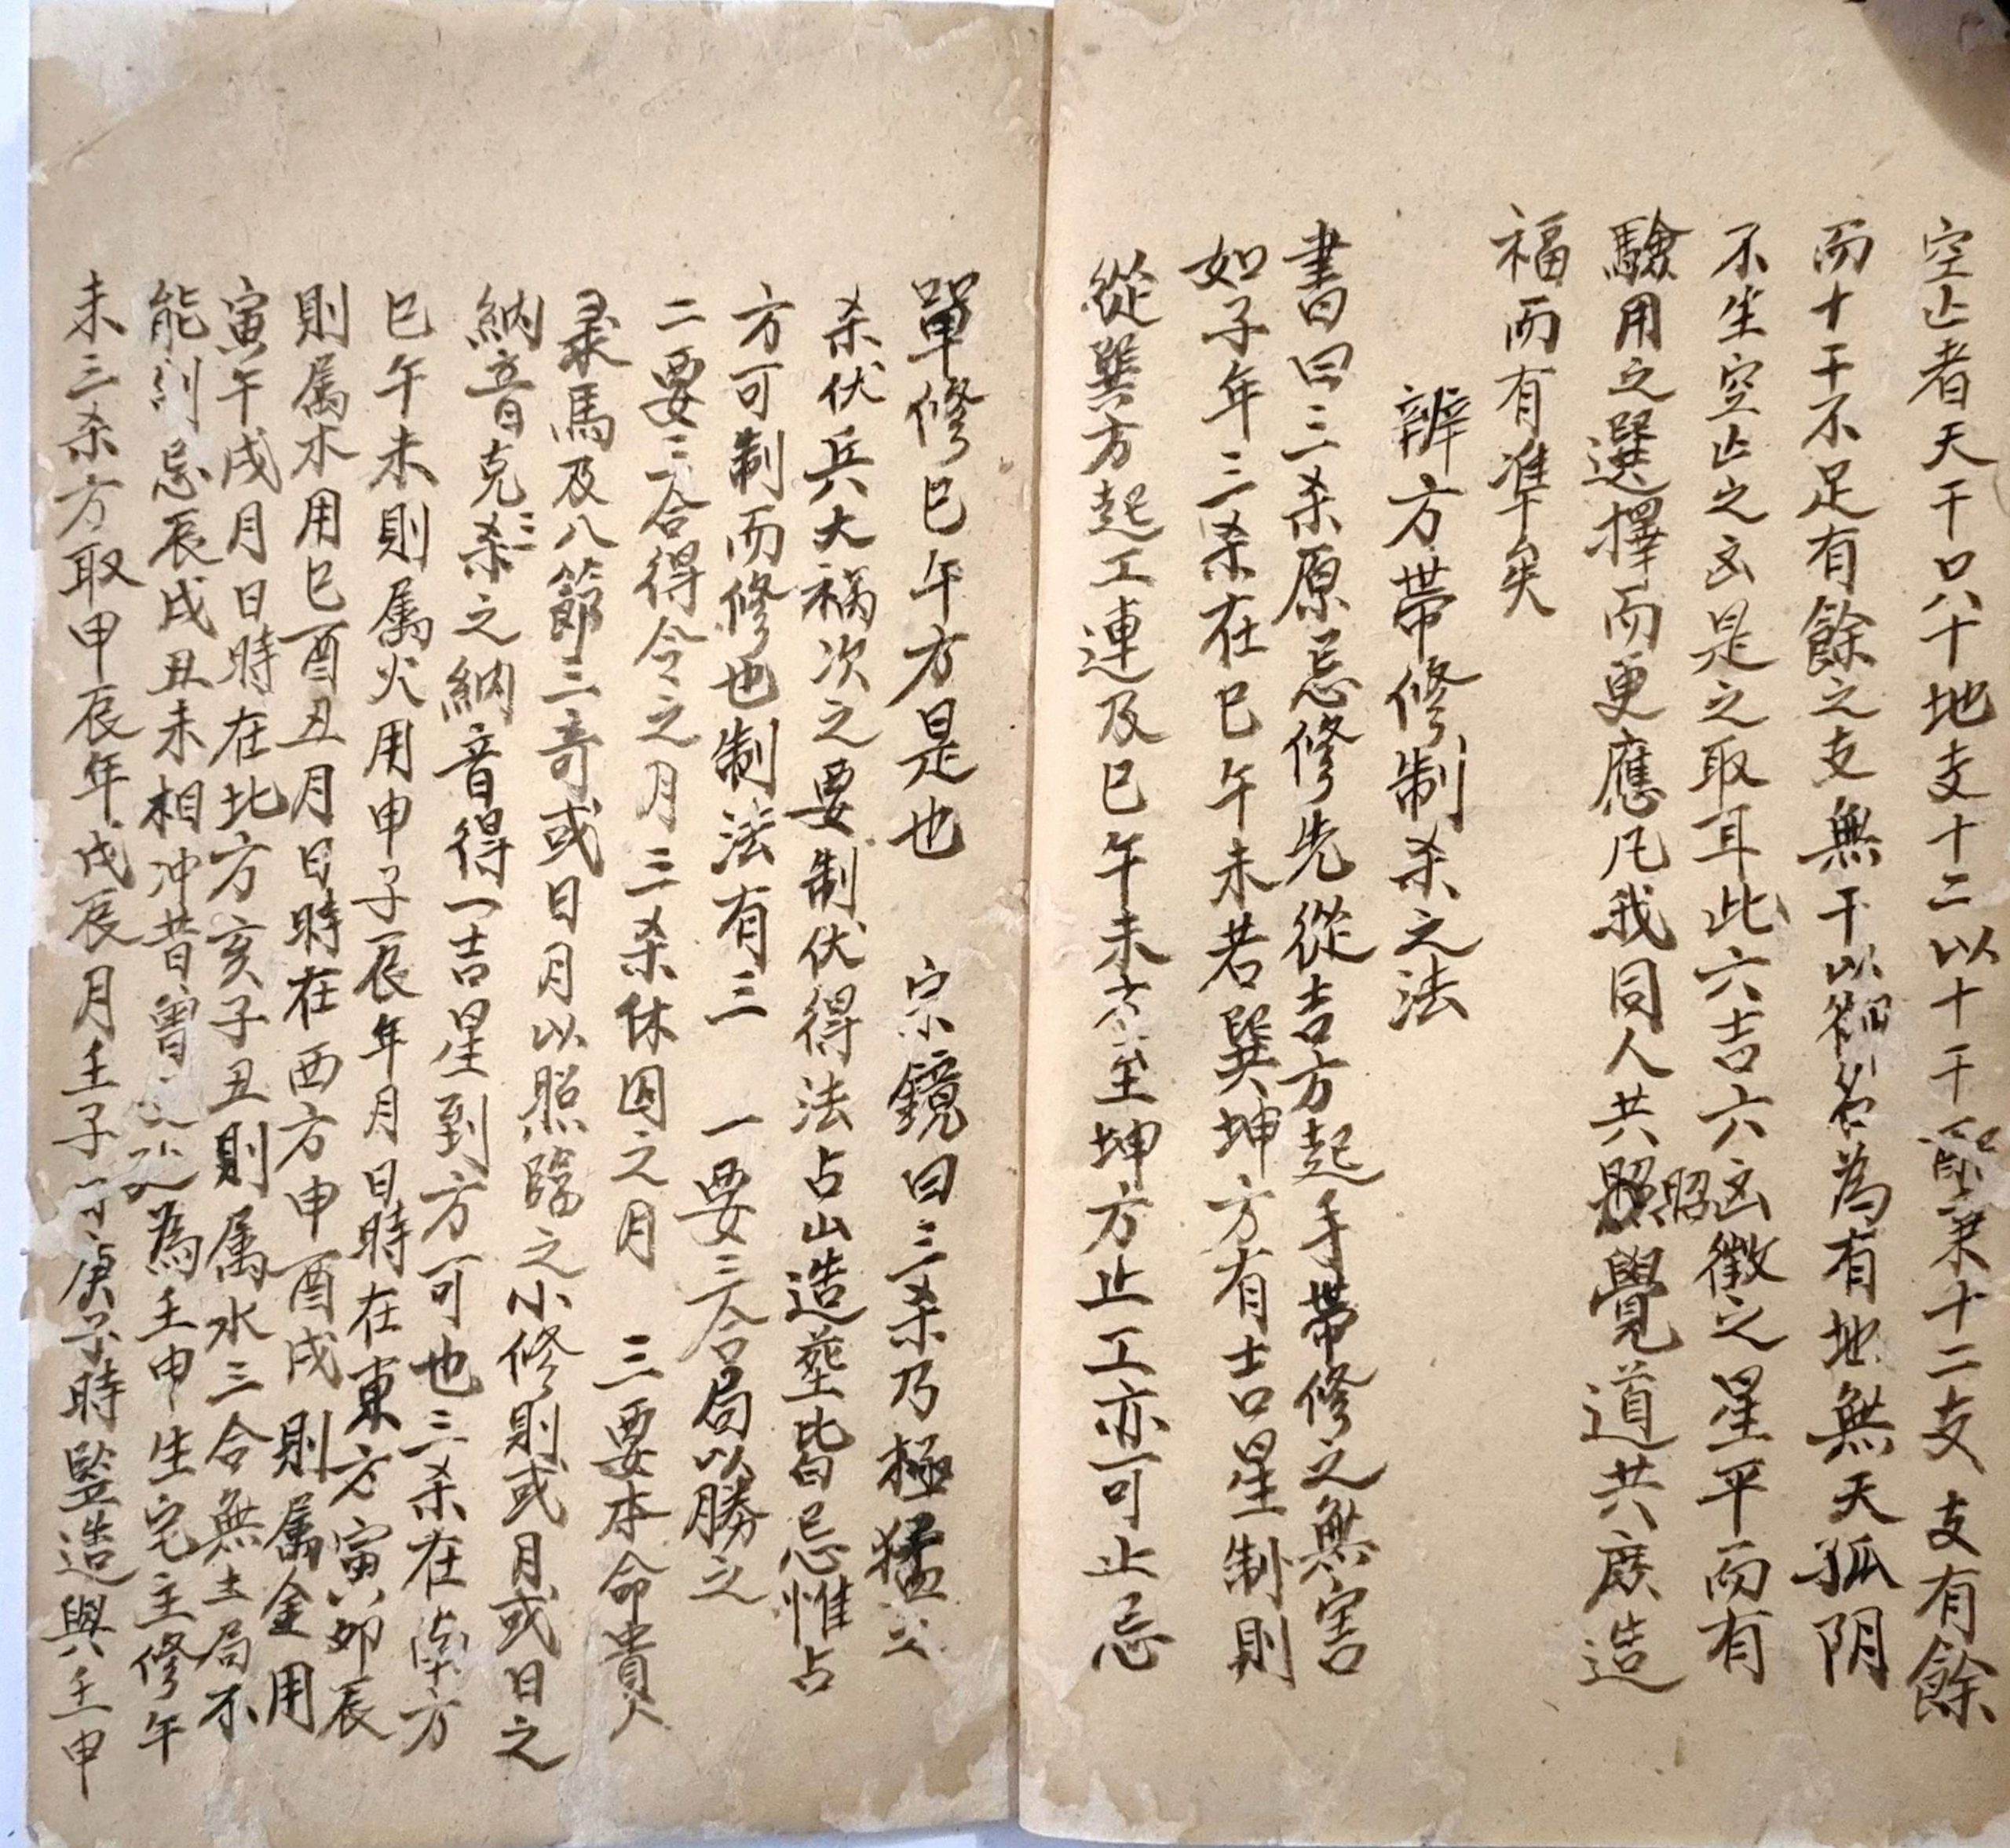 空亡者天干只十地支十二以十干配乘十二支支有餘
而十干不足有餘之支無干以御名為有地無天孤阴
不生空亡之凶是之取耳此六吉六凶徵之星平而有
驗用之選擇而更應凡我同人共照昭覺道共庶造
福而有準矣
辨方帶修制杀之法
書曰三杀原忌修先從吉方起手帶修之無害
如子年三杀在巳午未若巽坤方有吉星制則
從巽方起工連及巳午未方至坤方止工亦可止忌
單修巳午方是也 宗鏡曰三杀乃極猛
杀伏兵大禍次之要制伏得法占山造塟皆忌惟占
方可制而修也制法有三 一要三合局以勝之
二要三合得令之月三杀休囚之月 三要本命貴人
彔馬及八節三奇或日月以照臨之小修則或月或日之
納音克三杀之納音得一吉星到方可也三杀在南方
巳午未則属火用申子辰年月日時在東方寅卯辰
則属木用巳酉丑月日時在西方申酉戌則属金用
寅午戌月日時在北方亥子丑則属水三合無土局不
能制忌辰戌丑未相冲昔曾為壬申生宅主修午
未三杀方取甲辰年戊辰月壬子日庚子時豎造與壬申